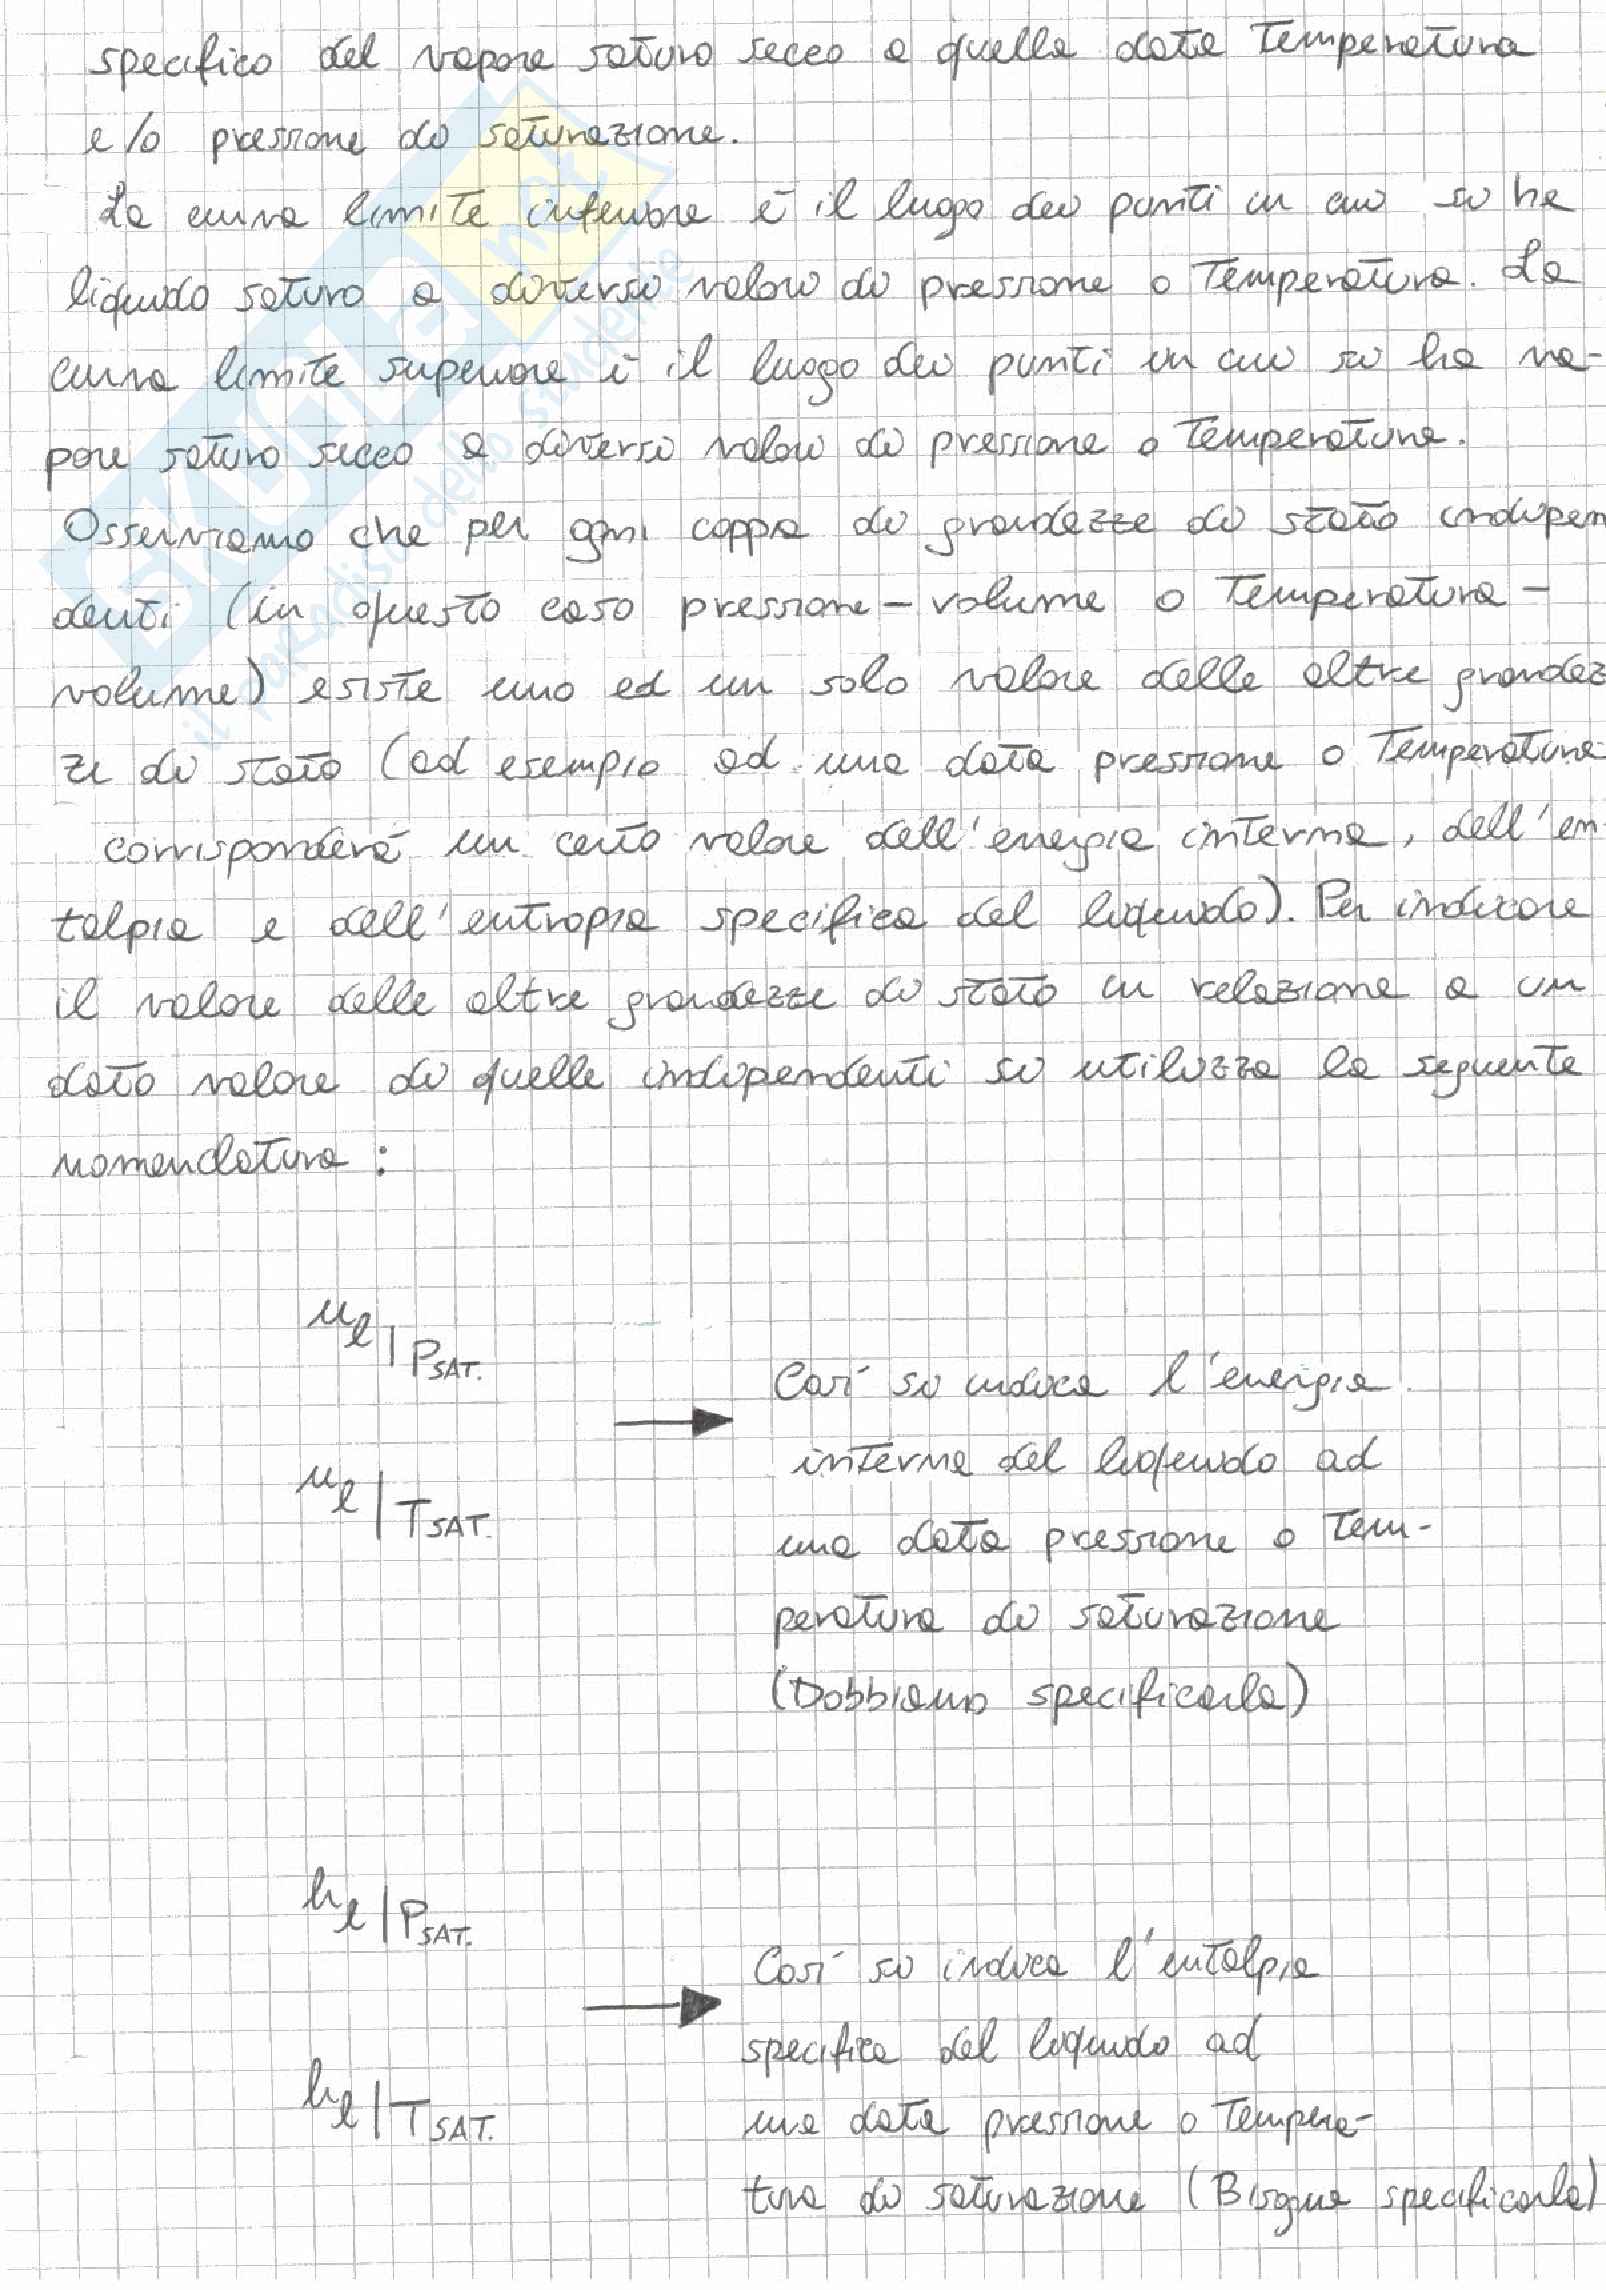 specifico del vapore saturo secco a quella data temperatura
e/o pressione di saturazione.
La curva limite inferiore è il luogo dei punti in cui si ha
liquido saturo a diversi valori di pressione o temperatura. La
curva limite superiore è il luogo dei punti in cui si ha va-
pore saturo secco a diversi valori di pressione o temperatura.
Osserviamo che per ogni coppia di grandezze di stato indipen
denti (in questo caso pressione - volume o temperatura -
volume) esiste uno ed un solo valore delle altre grandez
ze di stato (ad esempio ad una data pressione o temperatura
corrisponderà un certo valore dell'energia interna, dell'en
talpia e dell'entropia specifica del liquido). Per indicare
il valore delle altre grandezze di stato in relazione a un
dato valore di quelle indipendenti si utilizza la seguente
nomenclatura :
u_l | P_SAT.
Così si indica l'energia
interna del liquido ad
u_l | T_SAT.
una data pressione o tem-
peratura di saturazione
(Dobbiamo specificarla)
h_l | P_SAT.
Così si indica l'entalpia
specifica del liquido ad
h_l | T_SAT.
una data pressione o tempera-
tura di saturazione (Bisogna specificarla)
SKUOLA.net
il paradiso dello studente